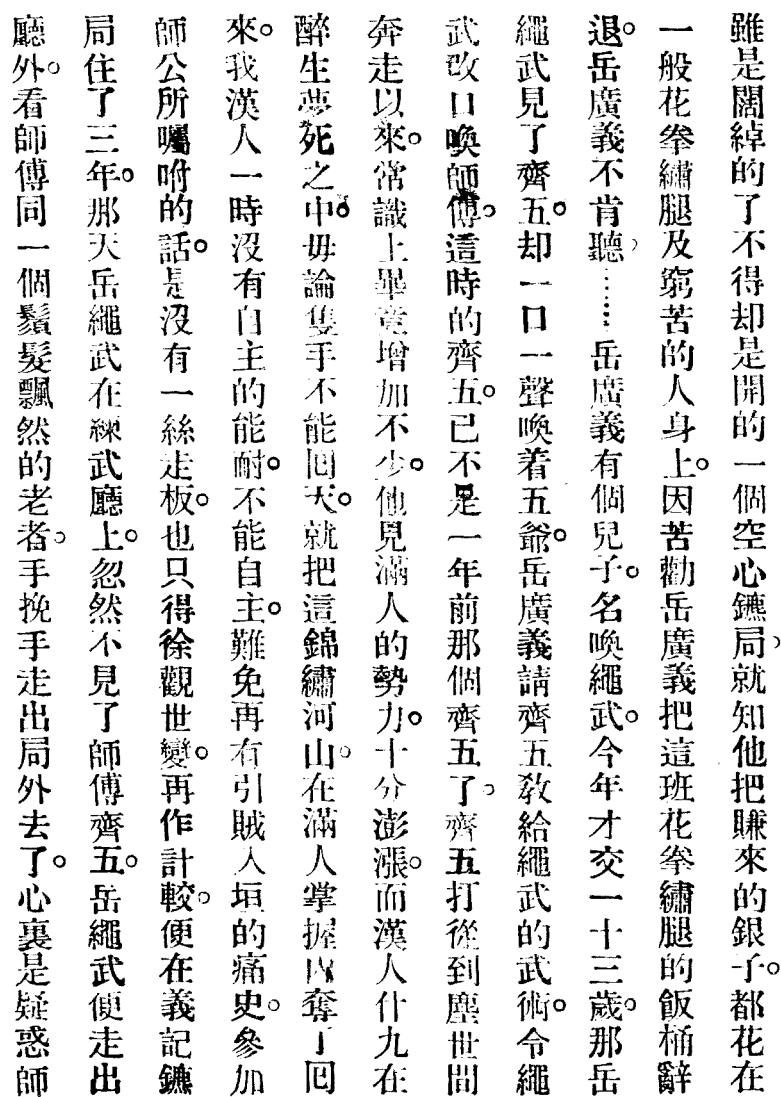 雖是闊綽的了不得却是開的一個空心鑣局，就知他把賺來的銀子。都花在
一般花拳繡腿及窮苦的人身上。因苦勸岳廣義把這班花拳繡腿的飯桶辭
退。岳廣義不肯聽，……岳廣義有個兒子。名喚繩武。今年才交一十三歲。那岳
繩武見了齊五。却一口一聲喚着五爺。岳廣義請齊五敎給繩武的武術。令繩
武改口喚師傅。這時的齊五。已不是一年前那個齊五了。齊五打從到塵世間
奔走以來。常識上畢竟增加不少。他見滿人的勢力。十分澎漲。而漢人什九在
醉生夢死之中。毋論隻手不能回天。就把這錦繡河山。在滿人掌握內奪了回
來。我漢人一時沒有自主的能耐。不能自主。難免再有引賊入垣的痛史。參加
師公所囑咐的話。是沒有一絲走板。也只得徐觀世變。再作計較。便在義記鑣
局住了三年。那天岳繩武在練武廳上。忽然不見了師傅齊五。岳繩武便走出
廳外。看師傅同一個鬚髮飄然的老者。手挽手走出局外去了。心裏是疑惑師